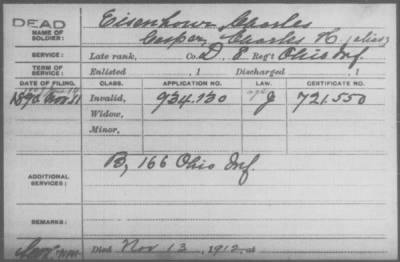 DEAD
NAME OF SOLDIER: Eisenhour Charles
Casper, Charles H. (alias)
SERVICE: Late rank, Co. D, 8 Reg't Ohio Inf.
TERM OF SERVICE: Enlisted , 1 Discharged , 1
DATE OF FILING. CLASS. APPLICATION NO. LAW. CERTIFICATE NO.
1890 Nov 11 Invalid, 934.130 J 721.550
Widow,
Minor,
ADDITIONAL SERVICES: B, 166 Ohio Inf.
REMARKS:
Died Nov 13, 1912, at